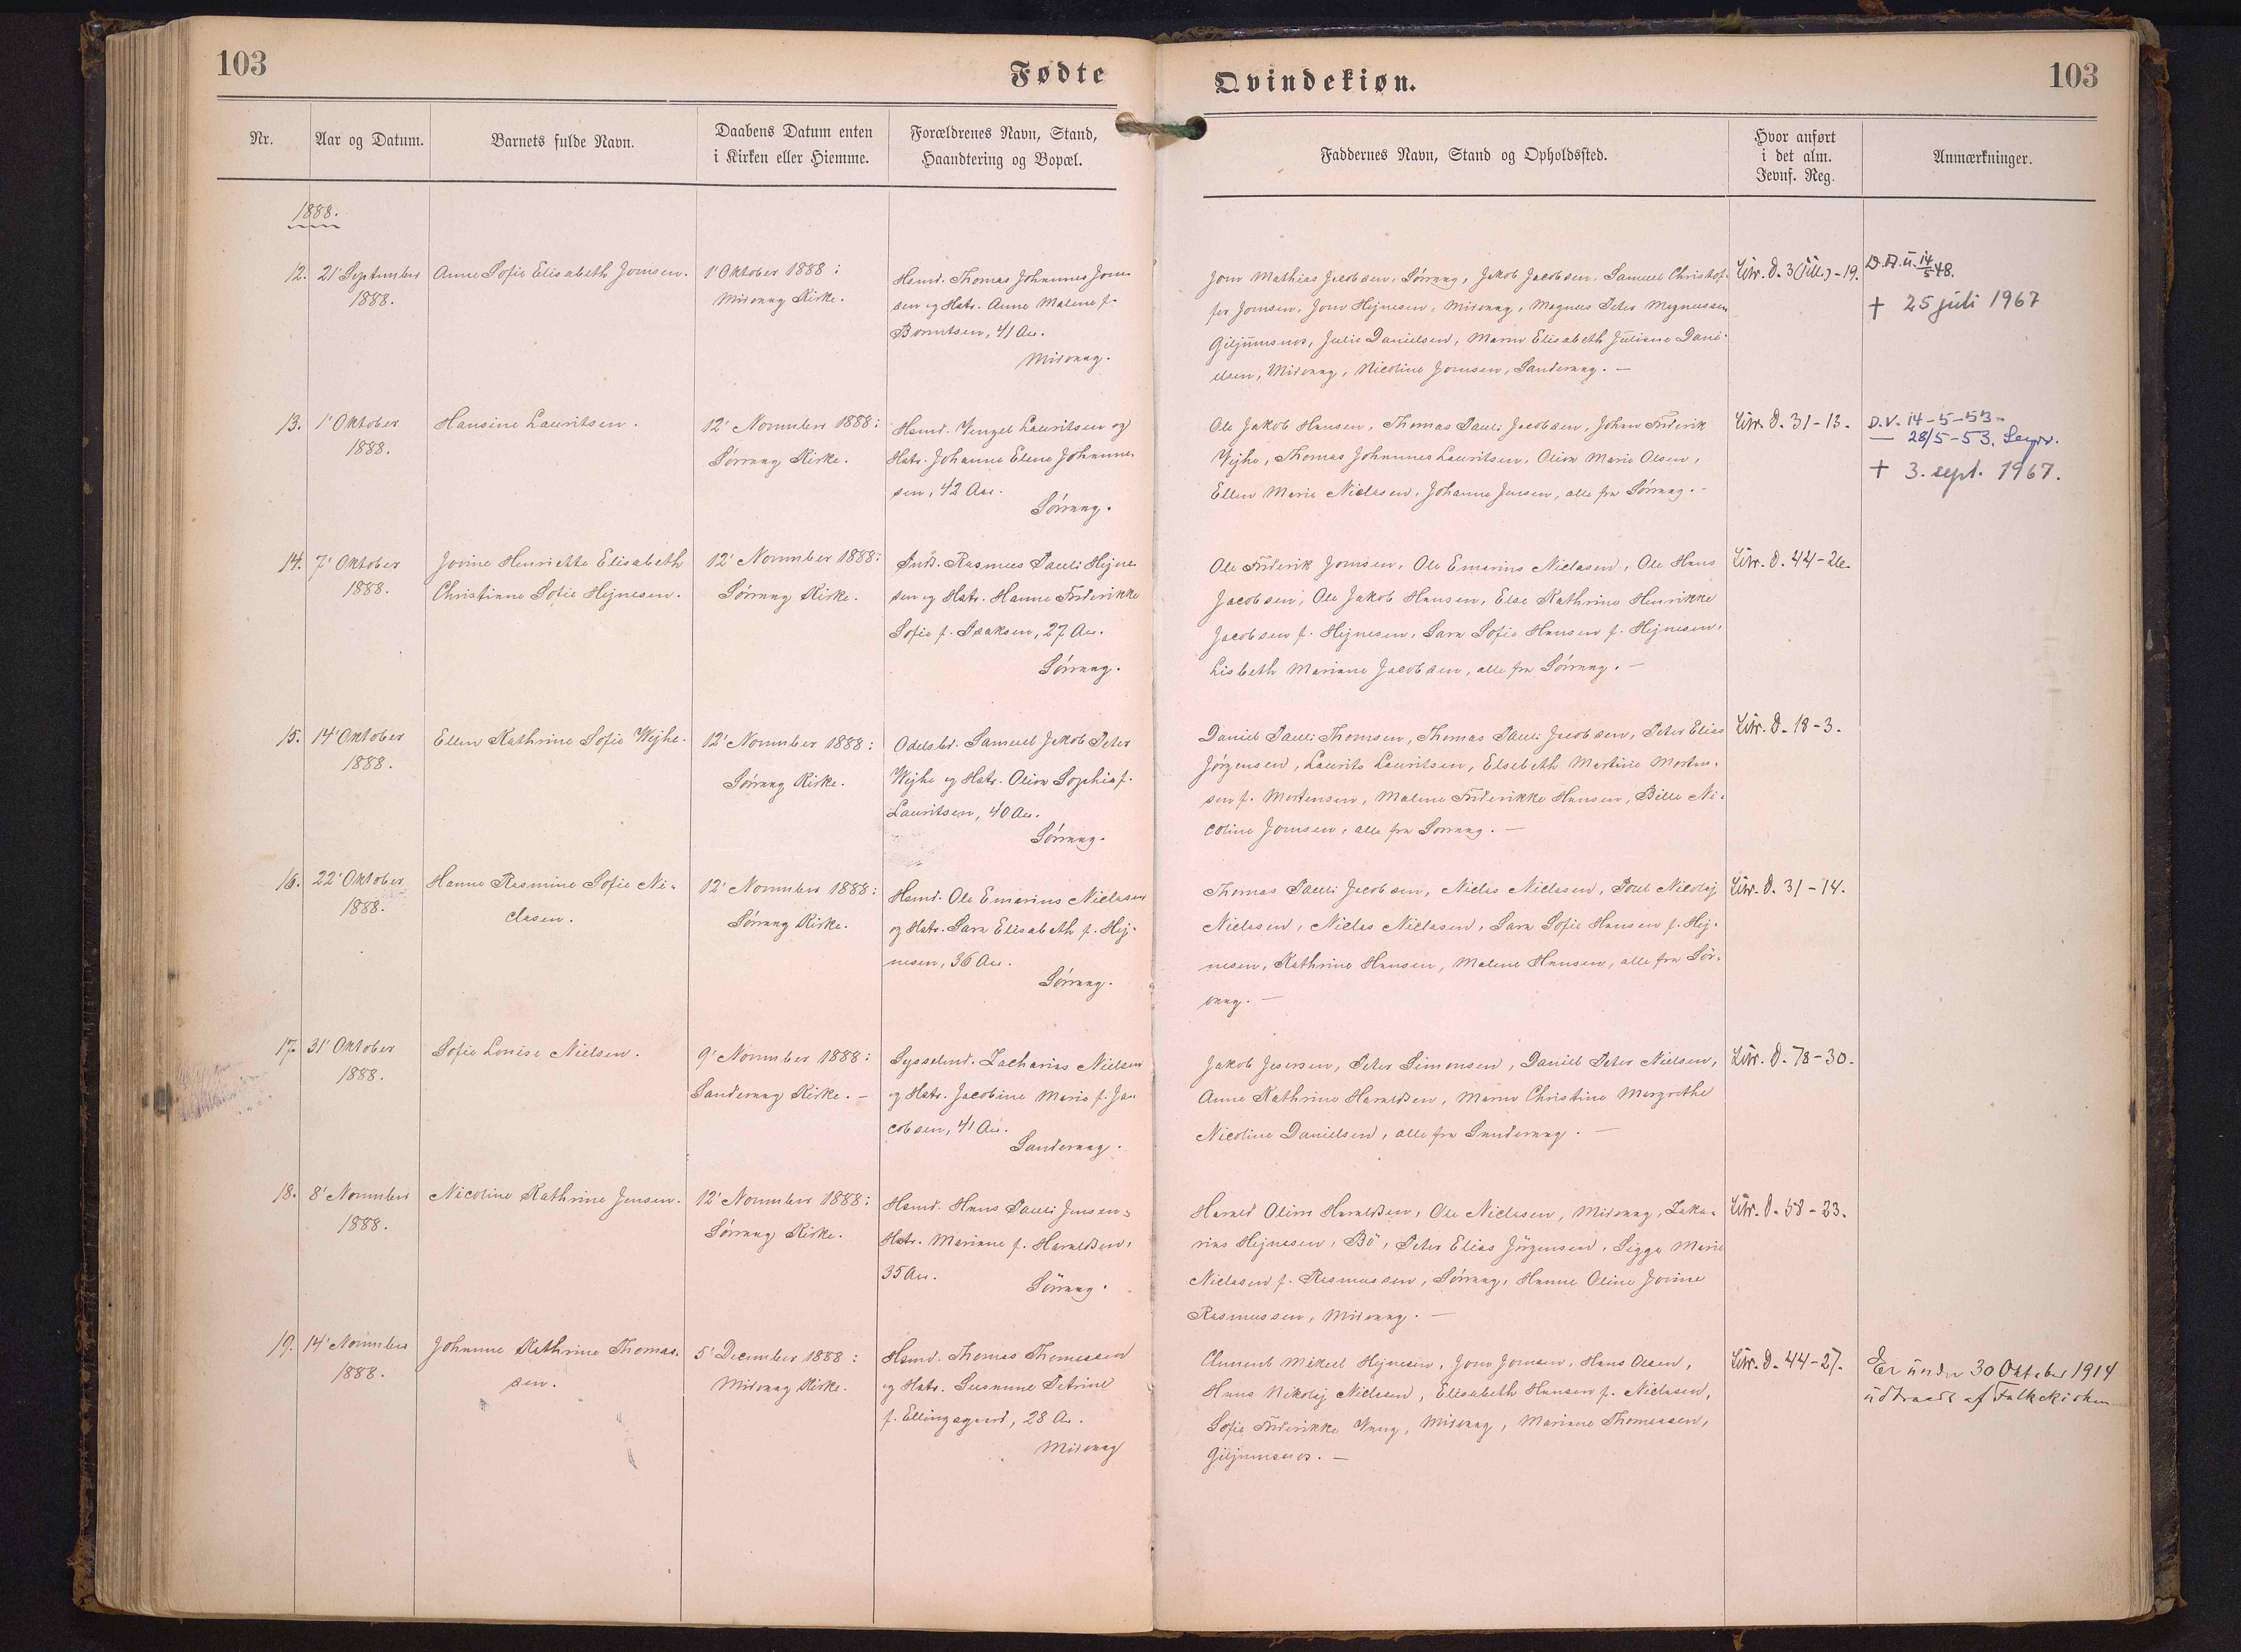 103
Fødte
Qvindekiøn.
103
Nr.
Aar og Datum.
Barnets fulde Navn.
Daabens Datum enten
i Kirken eller Hiemme.
Forældrenes Navn, Stand,
Haandtering og Bopæl.
Faddernes Navn, Stand og Opholdssted.
Hvor anført
i det alm.
Jevnf. Reg.
Anmærkninger.
1888.
12.
21' September
1888.
Anne Sofie Elisabeth Joensen.
1' Oktober 1888:
Midvaag Kirke.
Hsmd. Thomas Johannes Joen-
sen og Hstr. Anne Malene f.
Berentsen, 41 Aar.
Midvaag.
Joen Mathias Jacobsen, Sörvaag, Jakob Jacobsen, Samuel Christof-
fer Joensen, Joen Hejnesen, Midvaag, Magnus Peter Magnussen
Giljumsnes, Julie Danielsen, Maren Elisabeth Juliane Dani-
elsen, Midvaag, Nicoline Joensen, Sandevaag. —
Litr. D. 3 (Till.) - 19.
D.A.u. 14/5 48.
† 25 juli 1967
13.
1' Oktober
1888.
Hansine Lauritsen.
12' November 1888:
Sörvaag Kirke.
Hsmd. Venzel Lauritsen og
Hstr. Johanne Elene Johanne-
sen, 42 Aar.
Sörvaag.
Ole Jakob Hansen, Thomas Pauli Jacobsen, Johan Frederik
Wejhe, Thomas Johannes Lauritsen, Olivia Marie Olsen,
Ellen Marie Niclasen, Johanne Jensen, alle fra Sörvaag. -
Litr. D. 31 - 13.
D.V. 14-5-53-
— 28/5-53.
† 3. sept. 1967.
14.
7' Oktober
1888.
Jovine Henriette Elisabeth
Christianne Sofie Hejnesen.
12' November 1888:
Sörvaag Kirke.
Inds. Rasmus Pauli Hejne-
sen og Hstr. Hanne Frederikke
Sofie f. Isaksen, 27 Aar.
Sörvaag.
Ole Frederik Joensen, Ole Emarius Niclasen, Ole Hans
Jacobsen, Ole Jakob Hansen, Else Kathrine Henrikke
Jacobsen f. Hejnesen, Sara Sofie Hansen f. Hejnesen,
Lisbeth Mariane Jacobsen, alle fra Sörvaag. —
Litr. D. 44 - 26.
15.
14' Oktober
1888.
Ellen Kathrine Sofie Wejhe.
12' November 1888:
Sörvaag Kirke.
Odelsbd. Samuel Jakob Peter
Wejhe og Hstr. Olivia Sophia f.
Lauritsen, 40 Aar.
Sörvaag.
Daniel Pauli Thomsen, Thomas Pauli Jacobsen, Peter Elias
Jörgensen, Laurits Lauritsen, Elsebeth Martine Morten-
sen f. Mortensen, Malene Frederikke Hansen, Bille Ni-
coline Joensen, alle fra Sörvaag. —
Litr. D. 18 - 3.
16.
22' Oktober
1888.
Hanne Rasmine Sofie Ni-
clasen.
12' November 1888:
Sörvaag Kirke.
Hsmd. Ole Emarius Niclasen
og Hstr. Sara Elisabeth f. Hej-
nesen, 36 Aar.
Sörvaag.
Thomas Pauli Jacobsen, Niclas Niclasen, Poul Nicolaj
Niclasen, Niclas Niclasen, Sara Sofie Hansen f. Hej-
nesen, Kathrine Hansen, Malene Hansen, alle fra Sör-
vaag. —
Litr. D. 31 - 14.
17.
31' Oktober
1888.
Sofie Louise Nielsen.
9' November 1888:
Sandevaag Kirke. -
Sysselmd. Zacharias Nielsen
og Hstr. Jacobine Marie f. Ja-
cobsen, 41 Aar.
Sandevaag.
Jakob Jespersen, Peter Simonsen, Daniel Peter Nielsen,
Anne Kathrine Haraldsen, Maren Christine Margrethe
Nicoline Danielsen, alle fra Sandevaag. —
Litr. D. 78 - 30.
18.
8' November
1888.
Nicoline Kathrine Jensen.
12' November 1888:
Sörvaag Kirke.
Hsmd. Hans Pauli Jensen
Hstr. Mariane f. Haraldsen,
35 Aar.
Sörvaag.
Harald Olivir Haraldsen, Ole Niclasen, Midvaag, Zaka-
rias Hejnesen, Bö, Peter Elias Jörgensen, Sigga Marie
Niclasen f. Rasmussen, Sörvaag, Hanne Oline Jovine
Rasmussen, Midvaag. —
Litr. D. 58 - 23.
19.
14' November
1888.
Johanne Kathrine Thomas-
sen.
5' December 1888:
Midvaag Kirke.
Hsmd. Thomas Thomassen
og Hstr. Susanne Petrine
f. Ellingsgaard, 28 Aar.
Midvaag
Clement Mikael Hejnesen, Joen Joensen, Hans Olsen,
Hans Nikolaj Nielsen, Elisabeth Hansen f. Niclasen,
Sofie Frederikke Vaag, Midvaag, Mariane Thomassen,
Giljumsnes. —
Litr. D. 44 - 27.
Er under 30 Oktober 1914
udtraadt af Folkekirken